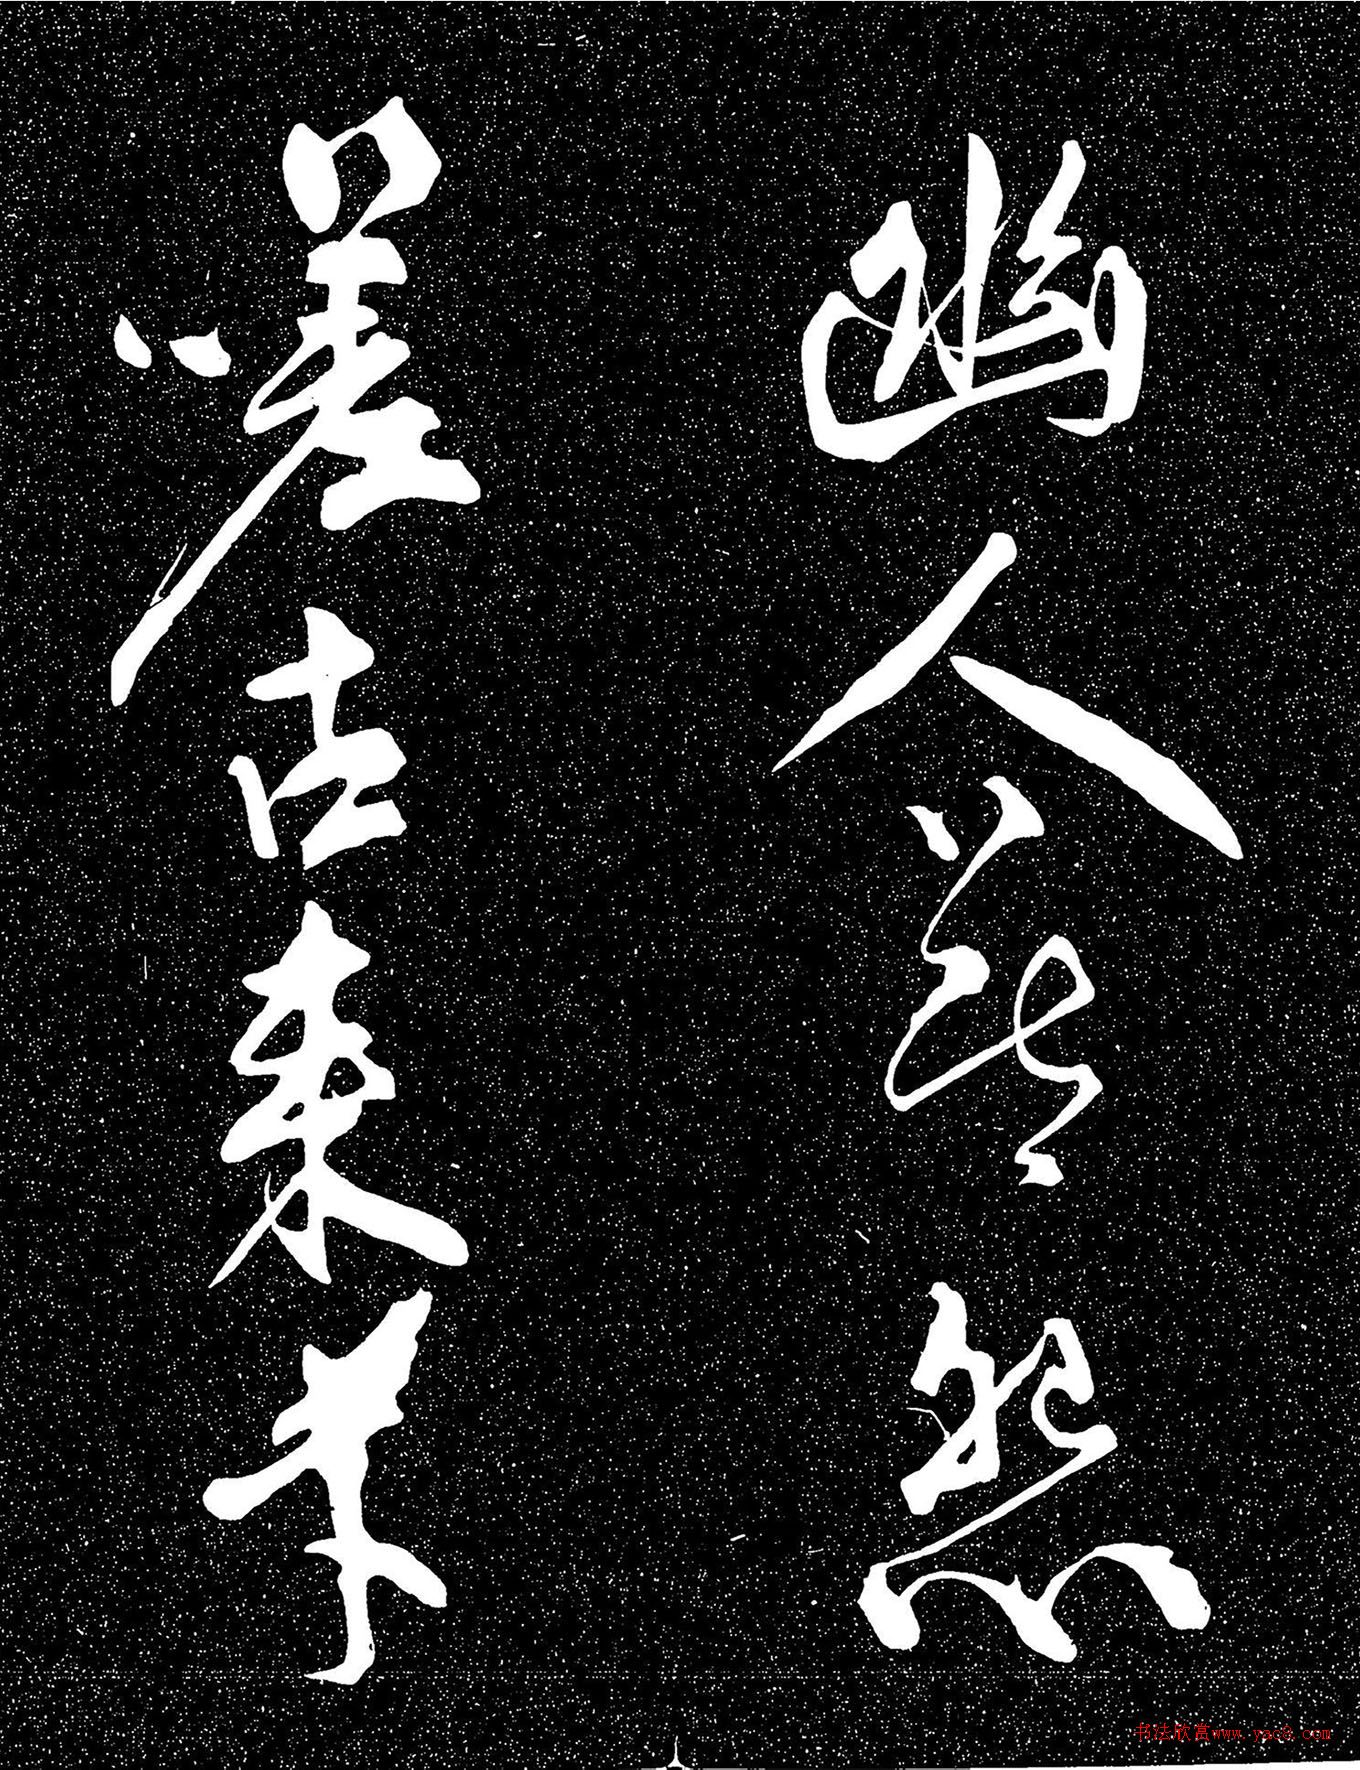 幽人怨
嗟古來
书法欣赏www.yac8.com